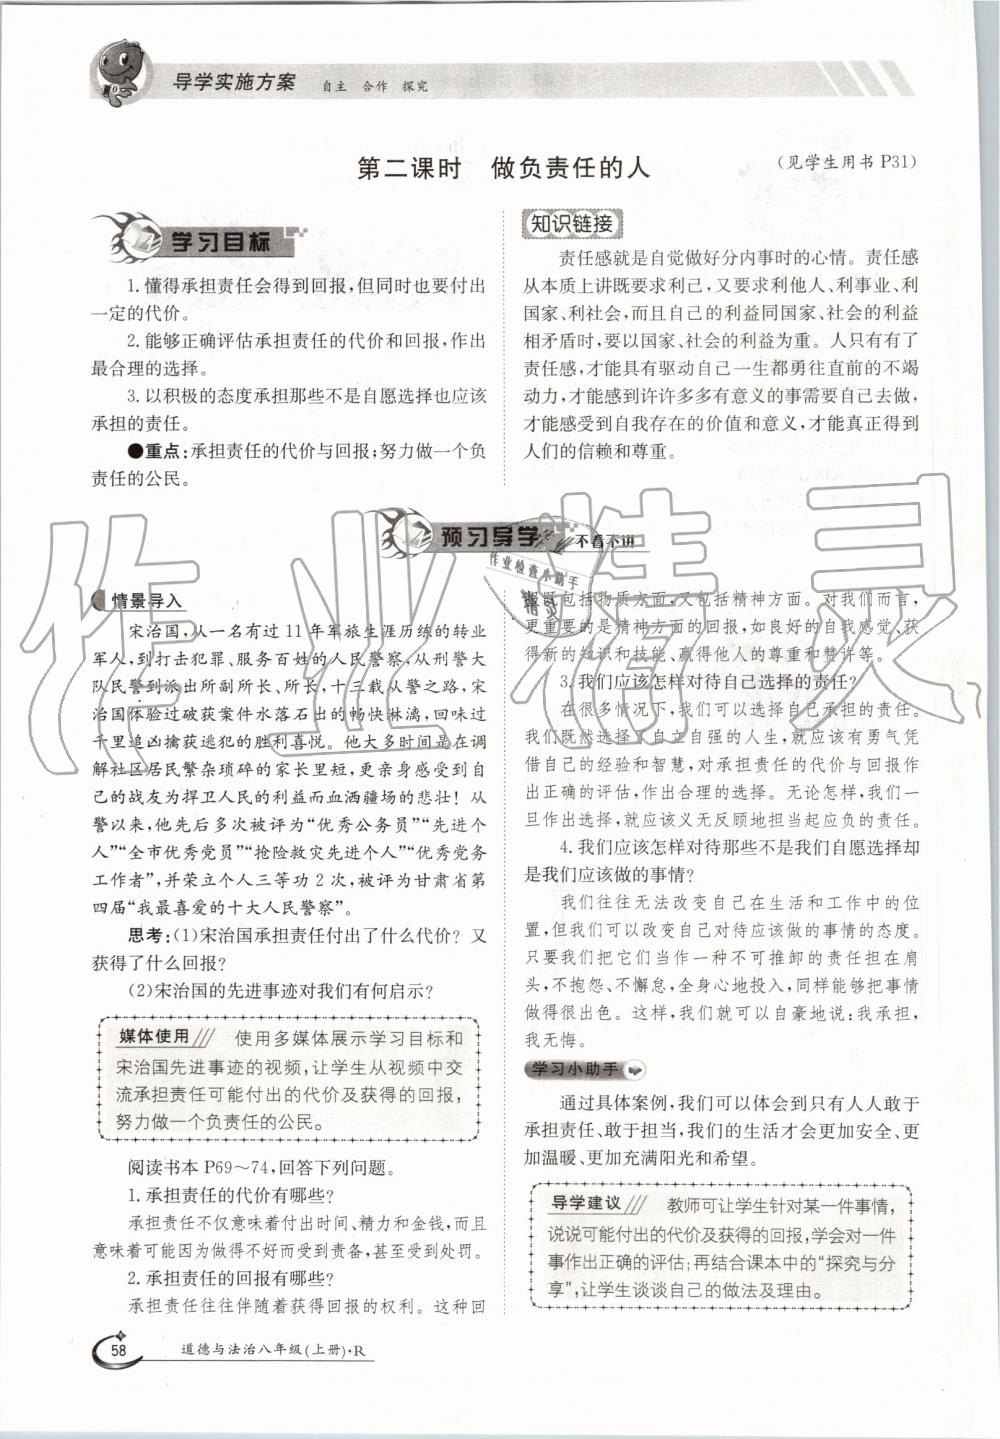 导学实施方案 自主 合作 探究
第二课时 做负责任的人
(见学生用书 P31)
学习目标
1.懂得承担责任会得到回报,但同时也要付出
一定的代价。
2.能够正确评估承担责任的代价和回报,作出
最合理的选择。
3.以积极的态度承担那些不是自愿选择也应该
承担的责任。
●重点:承担责任的代价与回报;努力做一个负
责任的公民。
知识链接
责任感就是自觉做好分内事时的心情。责任感
从本质上讲既要求利己,又要求利他人、利事业、利
国家、利社会,而且自己的利益同国家、社会的利益
相矛盾时,要以国家、社会的利益为重。人只有有了
责任感,才能具有驱动自己一生都勇往直前的不竭
动力,才能感到许许多多有意义的事需要自己去做,
才能感受到自我存在的价值和意义,才能真正得到
人们的信赖和尊重。
预习导学 不看不讲
情景导入
宋治国,从一名有过 11 年军旅生涯历练的转业
军人,到打击犯罪、服务百姓的人民警察,从刑警大
队民警到派出所副所长、所长,十三载从警之路,宋
治国体验过破获案件水落石出的畅快淋漓,回味过
千里追凶擒获逃犯的胜利喜悦。他大多时间是在调
解社区居民繁杂琐碎的家长里短,更亲身感受到自
己的战友为捍卫人民的利益而血洒疆场的悲壮!从
警以来,他先后多次被评为“优秀公务员”“先进个
人”“全市优秀党员”“抢险救灾先进个人”“优秀党务
工作者”,并荣立个人三等功 2 次,被评为甘肃省第
四届“我最喜爱的十大人民警察”。
思考:(1)宋治国承担责任付出了什么代价?又
获得了什么回报?
(2)宋治国的先进事迹对我们有何启示?
媒体使用 使用多媒体展示学习目标和
宋治国先进事迹的视频,让学生从视频中交
流承担责任可能付出的代价及获得的回报,
努力做一个负责任的公民。
阅读书本 P69～74,回答下列问题。
1.承担责任的代价有哪些?
承担责任不仅意味着付出时间、精力和金钱,而
且意味着可能因为做得不好而受到责备,甚至受到处罚。
2.承担责任的回报有哪些?
承担责任往往伴随着获得回报的权利。这种回
报既包括物质方面,又包括精神方面。对我们而言,
更重要的是精神方面的回报,如良好的自我感觉、获
得新的知识和技能、赢得他人的尊重和赞许等。
3.我们应该怎样对待自己选择的责任?
在很多情况下,我们可以选择自己承担的责任。
我们既然选择了自立自强的人生,就应该有勇气凭
借自己的经验和智慧,对承担责任的代价与回报作
出正确的评估,作出合理的选择。无论怎样,我们一
旦作出选择,就应该义无反顾地担当起应负的责任。
4.我们应该怎样对待那些不是我们自愿选择却
是我们应该做的事情?
我们往往无法改变自己在生活和工作中的位
置,但我们可以改变自己对待应该做的事情的态度。
只要我们把它们当作一种不可推卸的责任担在肩
头,不抱怨、不懈怠,全身心地投入,同样能够把事情
做得很出色。这样,我们就可以自豪地说:我承担,
我无悔。
学习小助手
通过具体案例,我们可以体会到只有人人敢于
承担责任、敢于担当,我们的生活才会更加安全、更
加温暖、更加充满阳光和希望。
导学建议 教师可让学生针对某一件事情,
说说可能付出的代价及获得的回报,学会对一件
事作出正确的评估;再结合课本中的“探究与分
享”,让学生谈谈自己的做法及理由。
58 道德与法治八年级(上册)·R
作业精灵
作业检查小助手
精灵